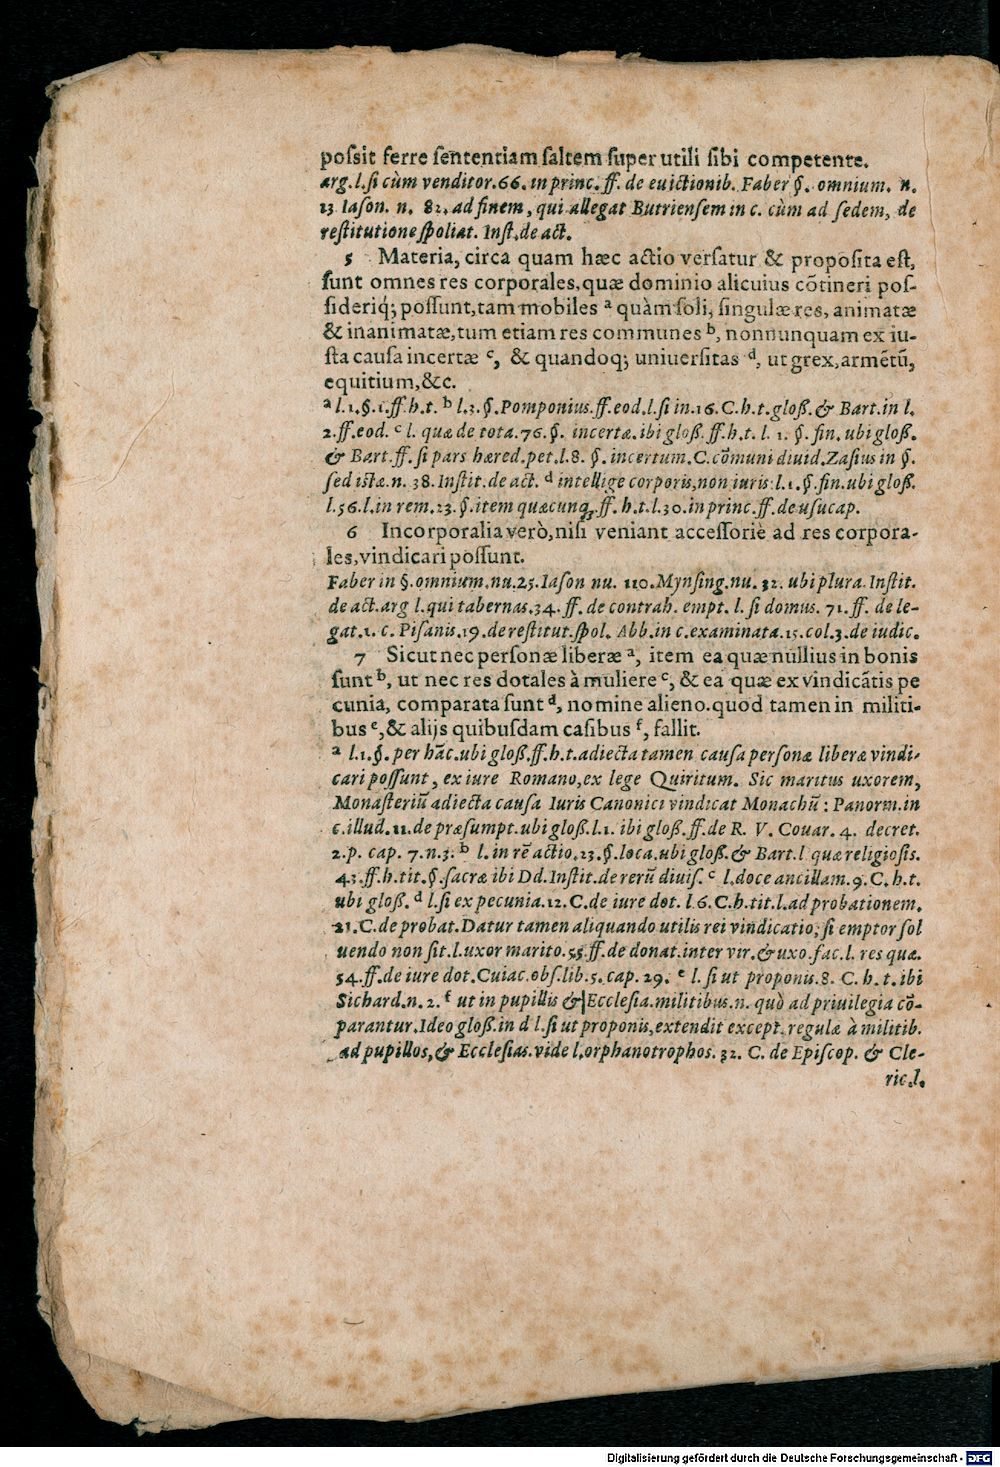 possit ferre sententiam saltem super utili sibi competente.
arg. l. si cùm venditor. 66. in princ. ff. de euictionib. Faber §. omnium. n.
13 Iason. n. 82. ad finem, qui allegat Butriensem in c. cùm ad sedem, de
restitutione spoliat. Inst. de act.
5 Materia, circa quam hæc actio versatur & proposita est,
sunt omnes res corporales, quæ dominio alicuius cõtineri pos-
sideriq́; possunt, tam mobiles ᵃ quàm soli, singulæ res, animatæ
& inanimatæ, tum etiam res communes ᵇ, nonnunquam ex iu-
sta causa incertæ ᶜ, & quandoq; uniuersitas ᵈ, ut grex, armẽtũ,
equitium, &c.
ᵃ l. 1. §. 1. ff. h. t. ᵇ l. 3. §. Pomponius. ff. eod. l. si in. 16. C. h. t. gloß. & Bart. in l.
2. ff. eod. ᶜ l. quæ de tota. 76. §. incertæ. ibi gloß. ff. h. t. l. 1. §. fin. ubi gloß.
& Bart. ff. si pars hæred. pet. l. 8. §. incertum. C. cõmuni diuid. Zasius in §.
sed istæ. n. 38. Instit. de act. ᵈ intellige corporis, non iuris: l. 1. §. fin. ubi gloß.
l. 56. l. in rem. 23. §. item quæcunq; ff. h. t. l. 30. in princ. ff. de usucap.
6 Incorporalia verò, nisi veniant accessoriè ad res corpora-
les, vindicari possunt.
Faber in §. omnium. nu. 25. Iason nu. 110. Mynsing. nu. 32. ubi plura. Instit.
de act. arg l. qui tabernas. 34. ff. de contrah. empt. l. si domus. 71. ff. de le-
gat. 1. c. Pisanis. 19. de restitut. spol. Abb. in c. examinata. 15. col. 3. de iudic.
7 Sicut nec personæ liberæ ᵃ, item ea quæ nullius in bonis
sunt ᵇ, ut nec res dotales à muliere ᶜ, & ea quæ ex vindicãtis pe
cunia, comparata sunt ᵈ, nomine alieno. quod tamen in militi-
bus ᵉ, & alijs quibusdam casibus ᶠ, fallit.
ᵃ l. 1. §. per hãc. ubi gloß. ff. h. t. adiecta tamen causa personæ liberæ vindi-
cari possunt, ex iure Romano, ex lege Quiritum. Sic maritus uxorem,
Monasteriũ adiecta causa Iuris Canonici vindicat Monachũ: Panorm. in
c. illud. 11. de præsumpt. ubi gloß. l. 1. ibi gloß. ff. de R. V. Couar. 4. decret.
2. p. cap. 7. n. 3. ᵇ l. in rẽ actio. 23. §. loca. ubi gloß. & Bart. l quæ religiosis.
43. ff. h. tit. §. sacræ ibi Dd. Instit. de rerũ diuis. ᶜ l. doce ancillam. 9. C. h. t.
ubi gloß. ᵈ l. si ex pecunia. 12. C. de iure dot. l. 6. C. h. tit. l. ad probationem.
21. C. de probat. Datur tamen aliquando utilis rei vindicatio, si emptor sol
uendo non sit. l. uxor marito. 55. ff. de donat. inter vir. & uxo. fac. l. res quæ.
54. ff. de iure dot. Cuiac. obs. lib. 5. cap. 29. ᵉ l. si ut proponis. 8. C. h. t. ibi
Sichard. n. 2. ᶠ ut in pupillis & Ecclesia. militibus. n. quò ad priuilegia cõ-
parantur. Ideo gloß. in d l. si ut proponis, extendit except. regulæ à militib.
ad pupillos, & Ecclesias. vide l. orphanotrophos. 32. C. de Episcop. & Cle-
ric. l.
Digitalisierung gefördert durch die Deutsche Forschungsgemeinschaft - DFG